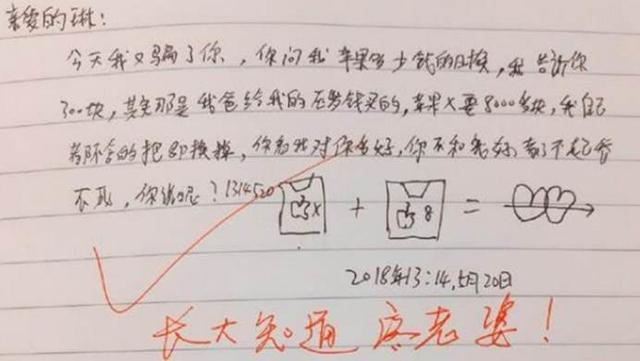 亲爱的琳:
今天我又骗了你,你问我苹果多少钱的时候,我告诉你
300块,其实那是我爸给我的压岁钱买的,苹果X要8000多块,我自己
都不舍的把8换掉,你看我对你多好,你不和我好
不死,你说呢?1314520 X + 8 =
2018年13:14,5月20日
长大知道疼老婆!